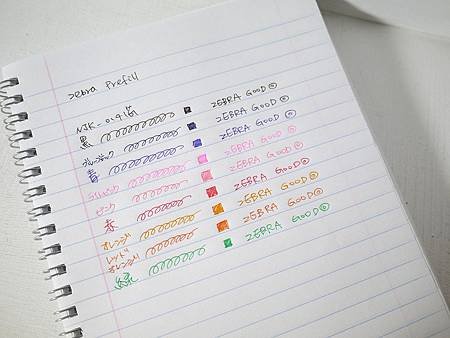 Zebra Prefill
NJK-0.4芯
黒 ZEBRA GOOD◎
ブルーブラック ZEBRA GOOD◎
青 ZEBRA GOOD◎
ZEBRA GOOD◎
ピンク ZEBRA GOOD◎
赤 ZEBRA GOOD◎
オレンジ ZEBRA GOOD◎
レッドオレンジ ZEBRA GOOD◎
緑 ZEBRA GOOD◎